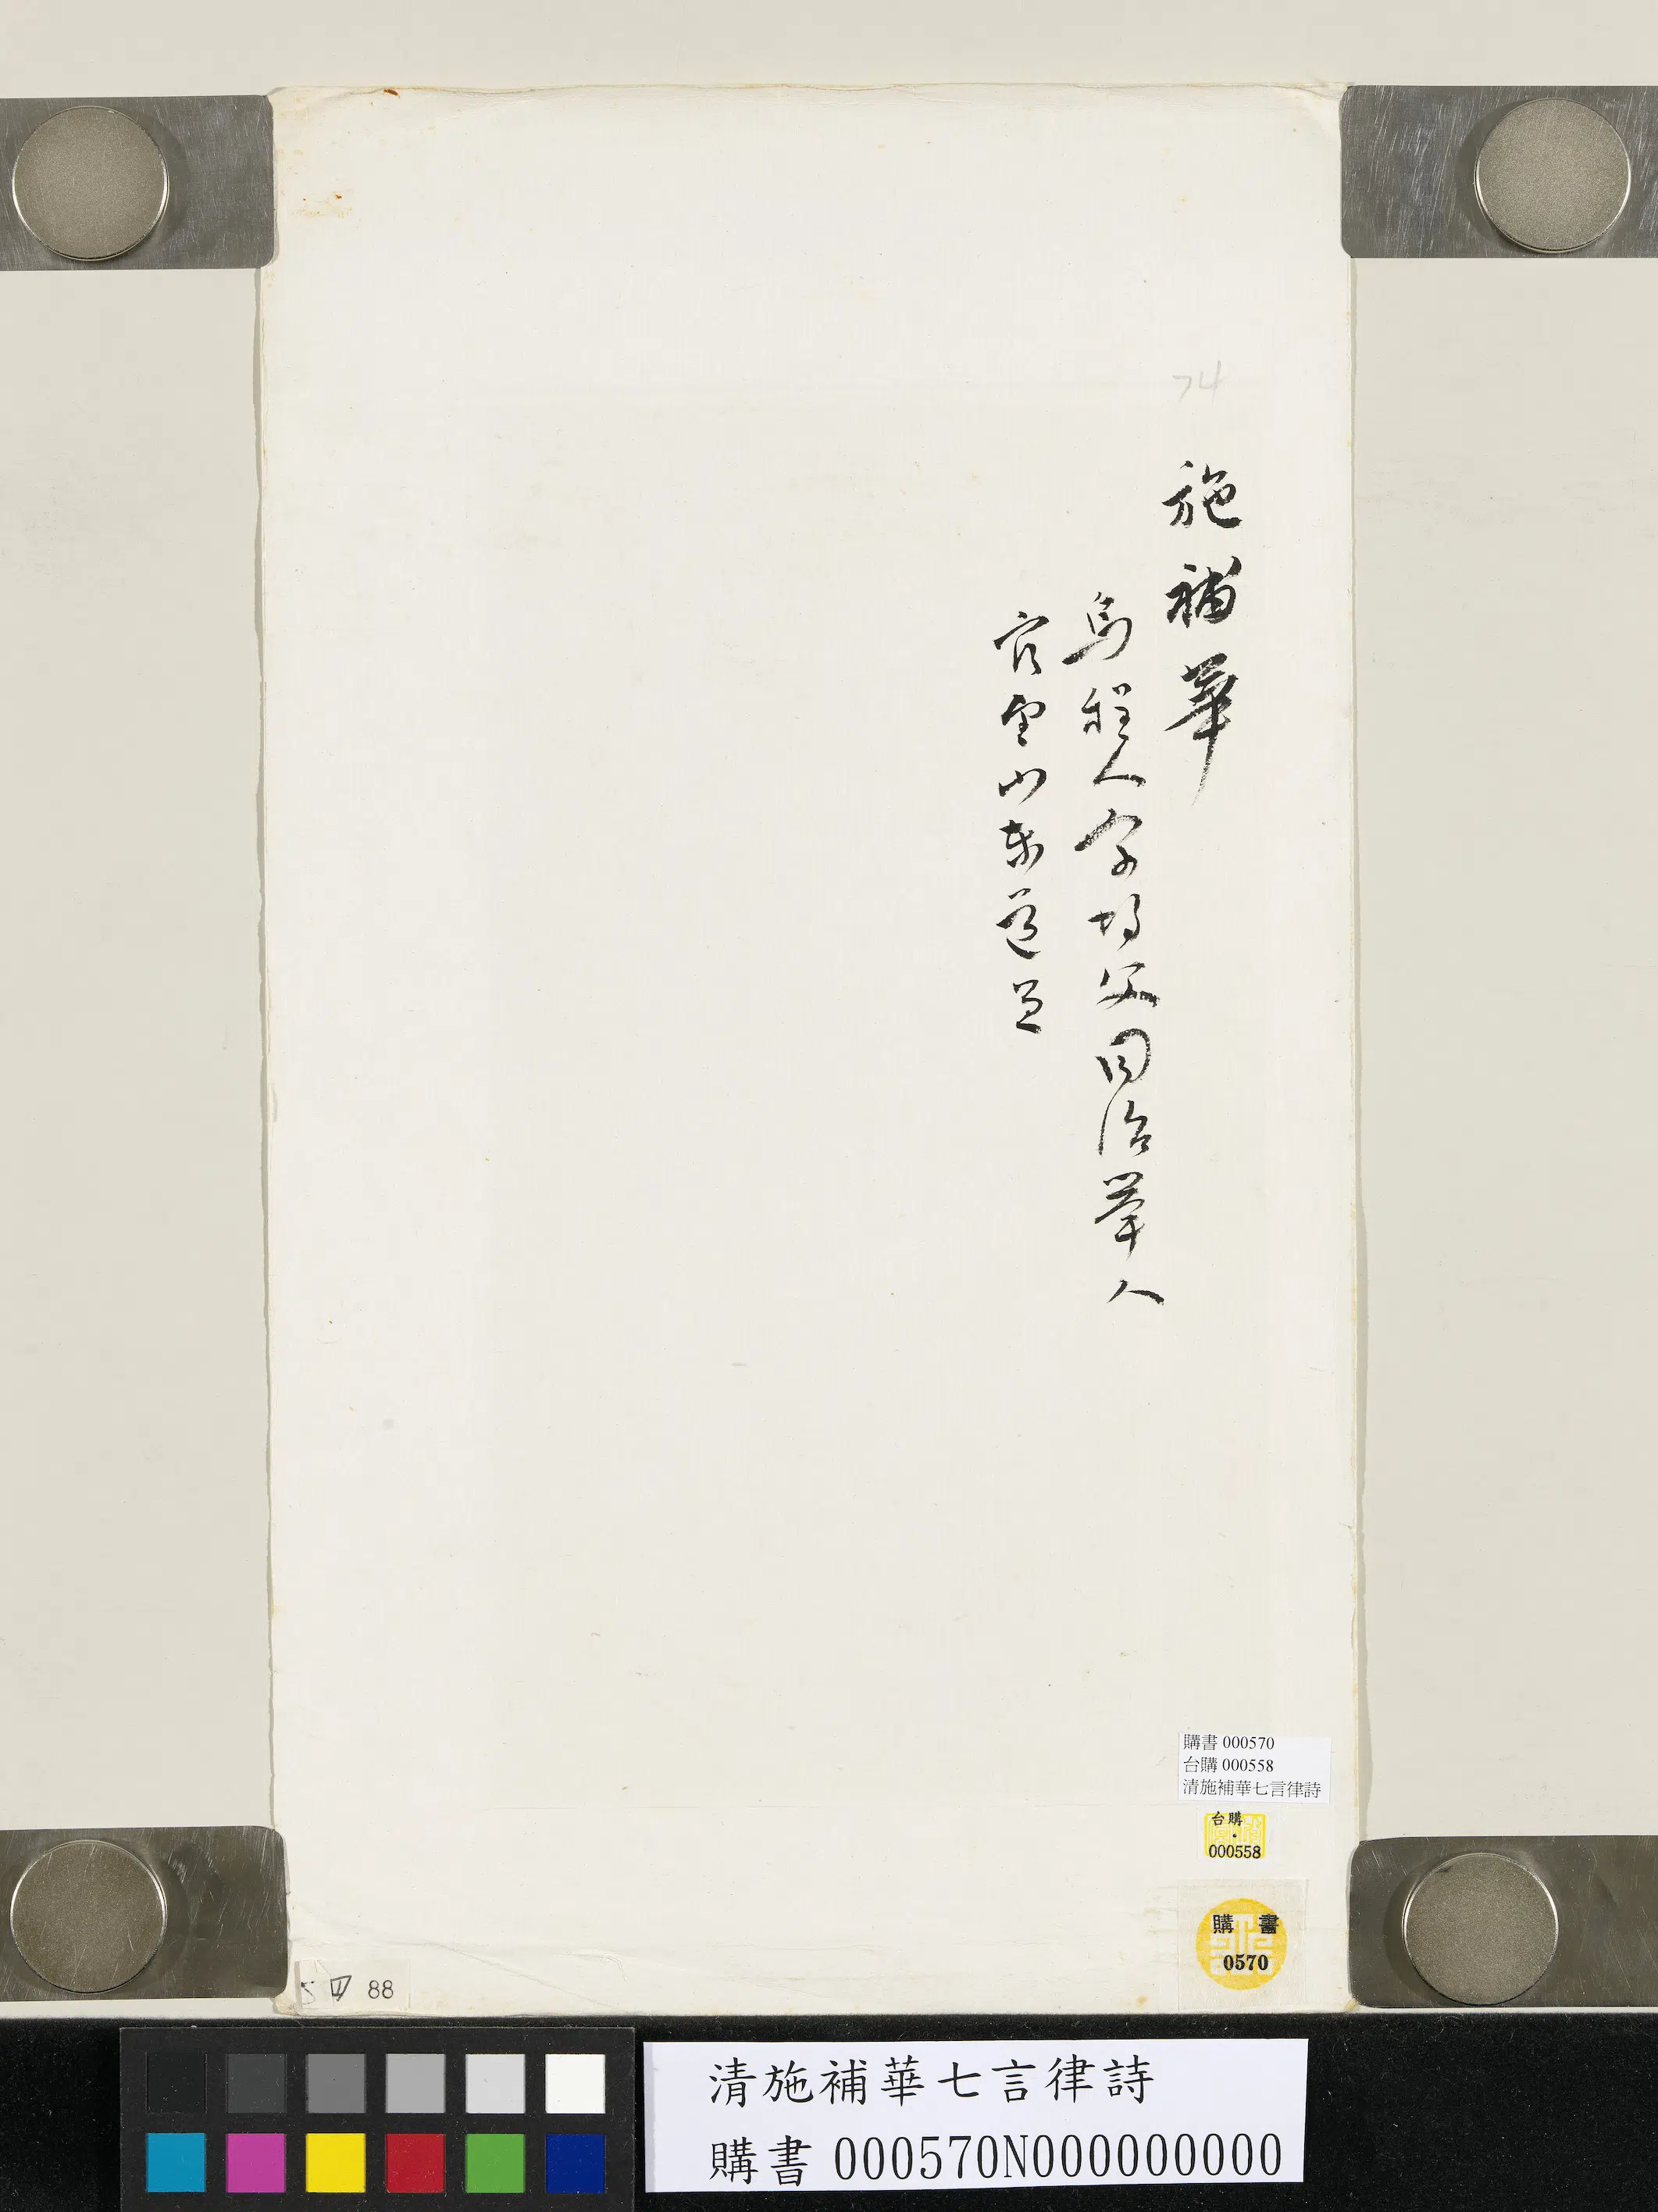 74
施補華
烏程人字均父同治舉人
官至山東道員
購書 000570
台購 000558
清施補華七言律詩
台購
000558
購 書
0570
88
清施補華七言律詩
購書 000570N000000000